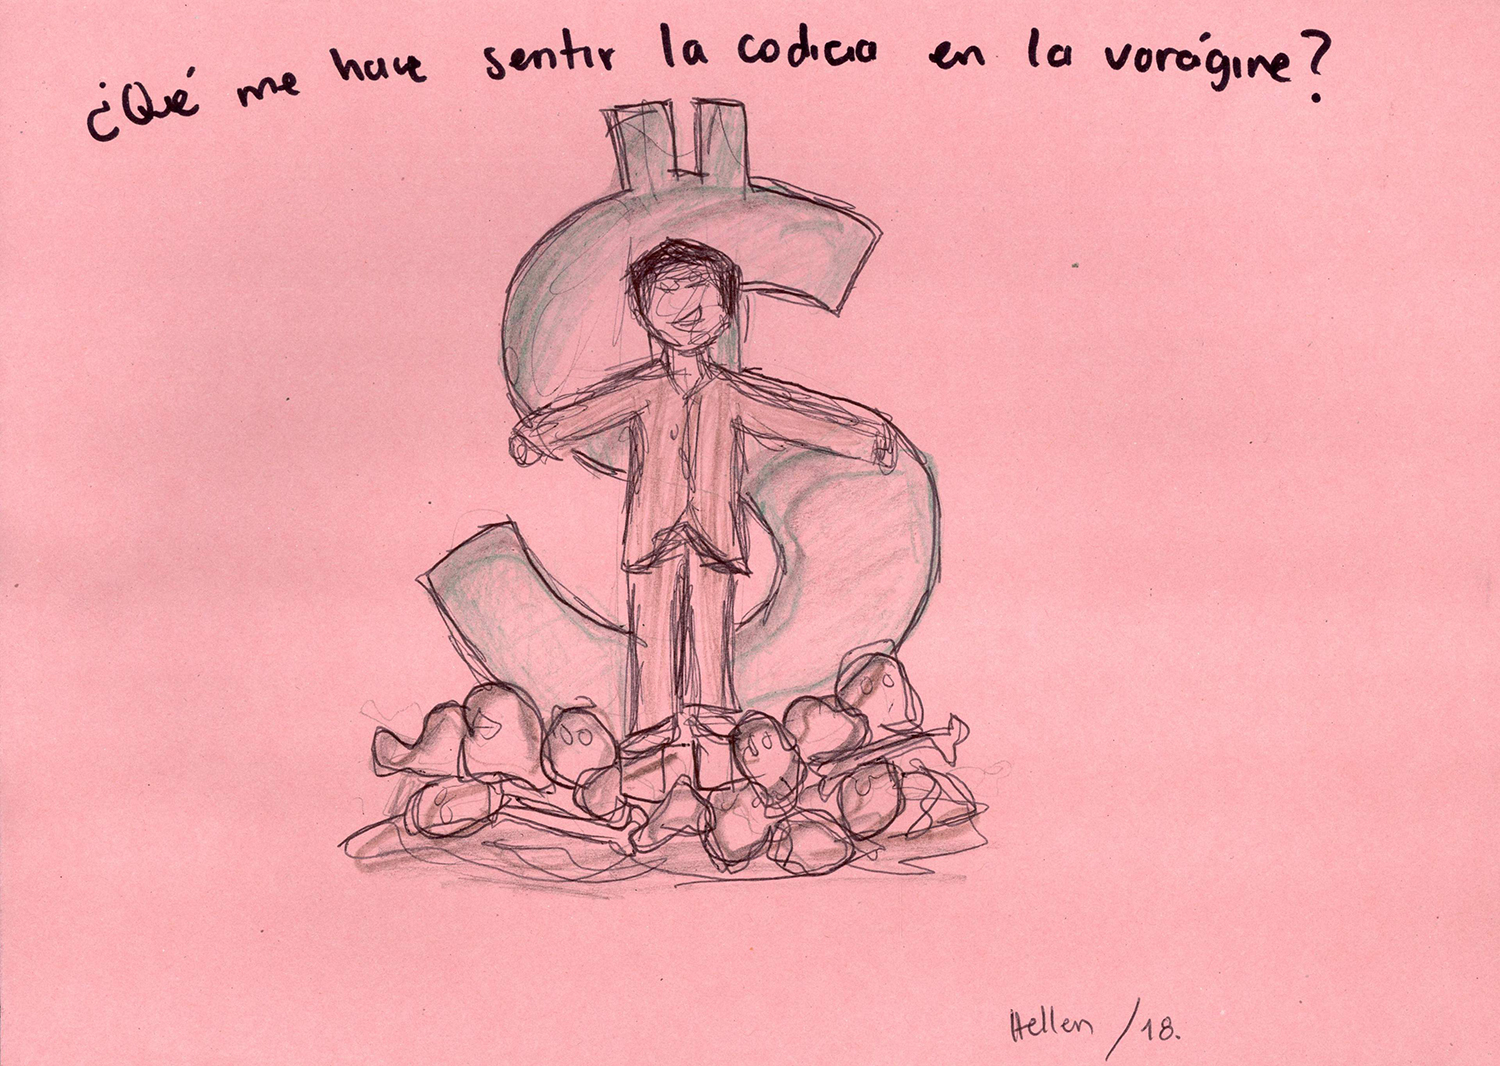 ¿Qué me hace sentir la codicia en la vorágine?
Hellen /18.